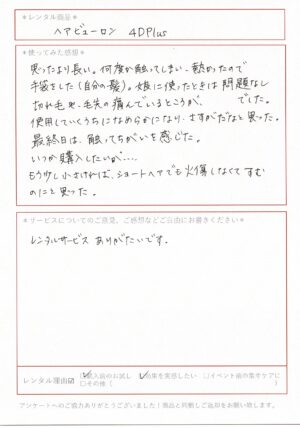 ＊レンタル商品＊
ヘアビューロン 4DPlus
＊使ってみた感想＊
思ったより長い。何度か触ってしまい、熱かったので
手袋をした(自分の髪)。娘に使ったときは問題なし
切れ毛や、毛先の痛んでいるところが、 でした。
使用していくうちになめらかになり、さすがだなと思った。
最終日は、触ってちがいを感じた。
いつか購入したいが…
もう少し小さければ、ショートヘアでも火傷しなくてすむ
のにと思った。
＊サービスについてのご意見、ご感想などご自由にお書きください＊
レンタルサービス ありがたいです。
レンタル理由
☑購入前のお試し ☑効果を実感したい □イベント前の集中ケアに
□その他( )
アンケートへのご協力ありがとうございました！商品と同梱しご返却をお願い致します。